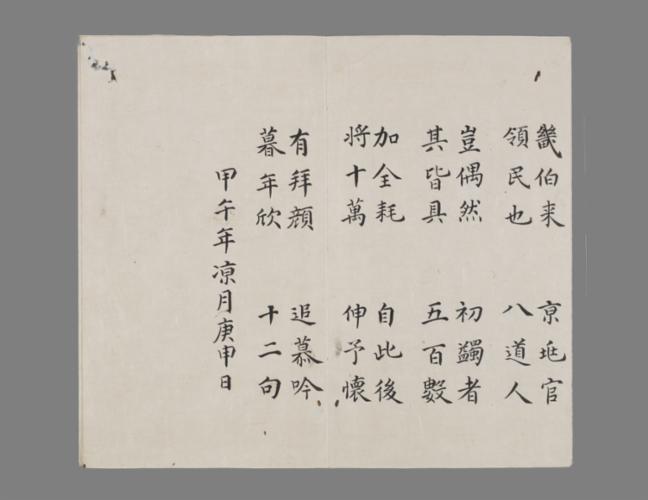 畿伯来 亰官
領民也 八道人
豈偶然 初蠲者
其皆具 五百數
加全耗 自此後
將十萬 伸予懷
有拜顔 追慕吟
暮年欣 十二句
甲午年凉月庚申日